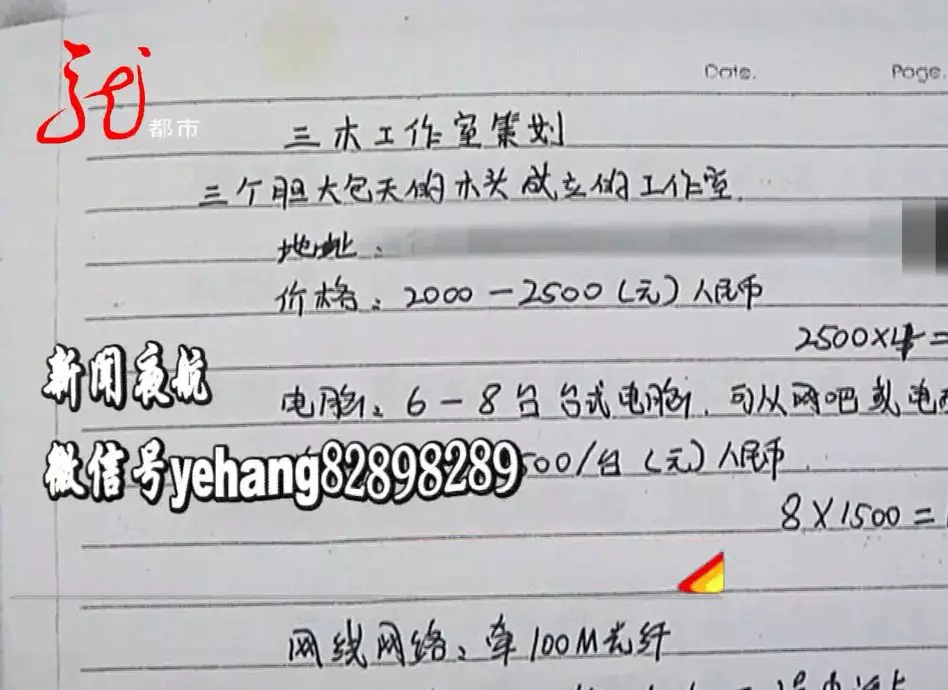 Date.
Page.
龙
都市
三木工作室策划
三个胆大包天的木头成立的工作室.
地址:
价格:2000-2500(元)人民币
2500×4=
新闻夜航
电脑:6-8台台式电脑.可从网吧或电
微信号yehang82898289
500/台(元)人民币.
8×1500=
网线网络:牵100M光纤